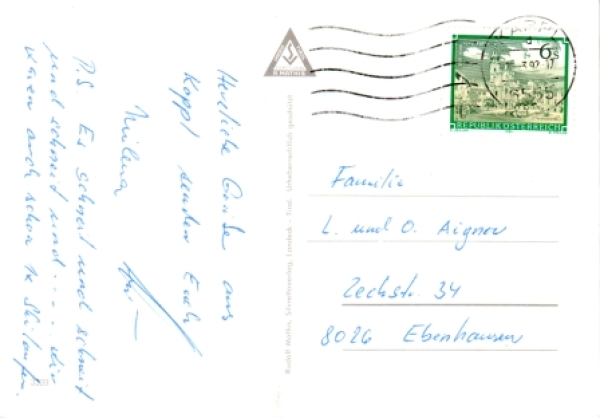 Herzliche Grüße aus
Kappl senden Euch
Milena
P.S Es schneit und schneit
und schneit und .... wir
waren auch schon 1x Skilaufen.
Rudolf Mathis, Silvrettaverlag, Landeck - Tirol. Urheberrechtlich geschützt
R. MATHIS
KAPPL
6555
6 S
REPUBLIK ÖSTERREICH
Familie
L. und O. Aigner
Zechstr. 34
8026 Ebenhausen